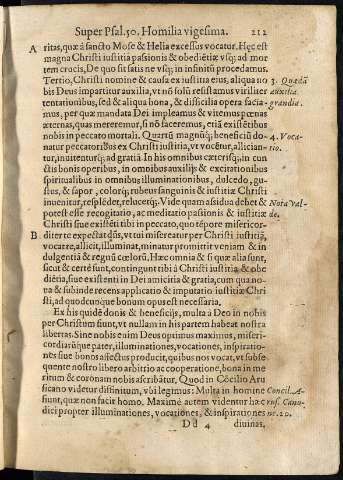 Super Psal. 50. Homilia vigesima. 212
A ritas, quæ á sancto Mose & Helia excessus vocatur. Hęc est
magna Christi iustitia passionis & obediētiæ vsq; ad mor
tem crucis, De quo sit satis ne vsq; in infinitū procedamus.
Tertio, Christi nomine & causa ex iustitia eius, aliqua no 3. Quædā
bis Deus impartitur auxilia, vt nō solū resistamus viriliter auxilia
tentationibus, sed & aliqua bona, & difficilia opera facia- grandia.
mus, per quæ mandata Dei impleamus & vitemus pœnas
æternas, quas mereremur, si nō faceremus, etiā existētibus
nobis in peccato mortali. Quartū magnūq; beneficiū do- 4. Voca-
natur peccatoribus ex Christi iustitia, vt vocētur, allician- tio.
tur, inuitenturq; ad gratiā In his omnibus cæterisq; in cun
ctis bonis operibus, in omnibus auxilijs & excitationibus
spiritualibus in omnibus illuminationibus, dulcedo, gu-
stus, & sapor, colorq; rubeus sanguinis & iustitiæ Christi
inuenitur, resplēdet, relucetq; Vide quam assidua debet & Nota Val-
potest esse recogitatio, ac meditatio passionis & iustitiæ de.
Christi siue existēti tibi in peccato, quo tēpore misericor-
B diter te expectat dn̄s, vt tui misereatur per Christi iustitiā,
vocat te, allicit, illuminat, minatur promittit veniam & in
dulgentiā & regnū cœlorū. Hæc omnia & si quæ alia sunt,
sicut & certē sunt, contingunt tibi á Christi iustitia & obe
diētia, siue existēti in Dei amicitia & gratia, cum qua no-
ua & subinde recens applicatio & imputatio iustitiæ Chri
sti, ad quodcunque bonum opus est necessaria.
Ex his quidē donis & beneficijs, multa á Deo in nobis
per Christum fiunt, vt nullam in his partem habeat nostra
libertas. Sine nobis enim Deus optimus maximus, miseri-
cordiarūque pater, illuminationes, vocationes, inspiratio-
nes siue bonos affectus producit, quibus nos vocat, vt subse
quente nostro libero arbitrio ac cooperatione, bona in me
ritum & coronam nobis ascribātur. Quod in Cōcilio Aru
sicano videtur diffinitum, vbi legimus: Multa in homine Concil. A-
fiunt, quæ non facit homo. Maximè autem videntur hæc rus. Cano-
dici propter illuminationes, vocationes, & inspirationes ne. 20.
Dd 4 diuinas,